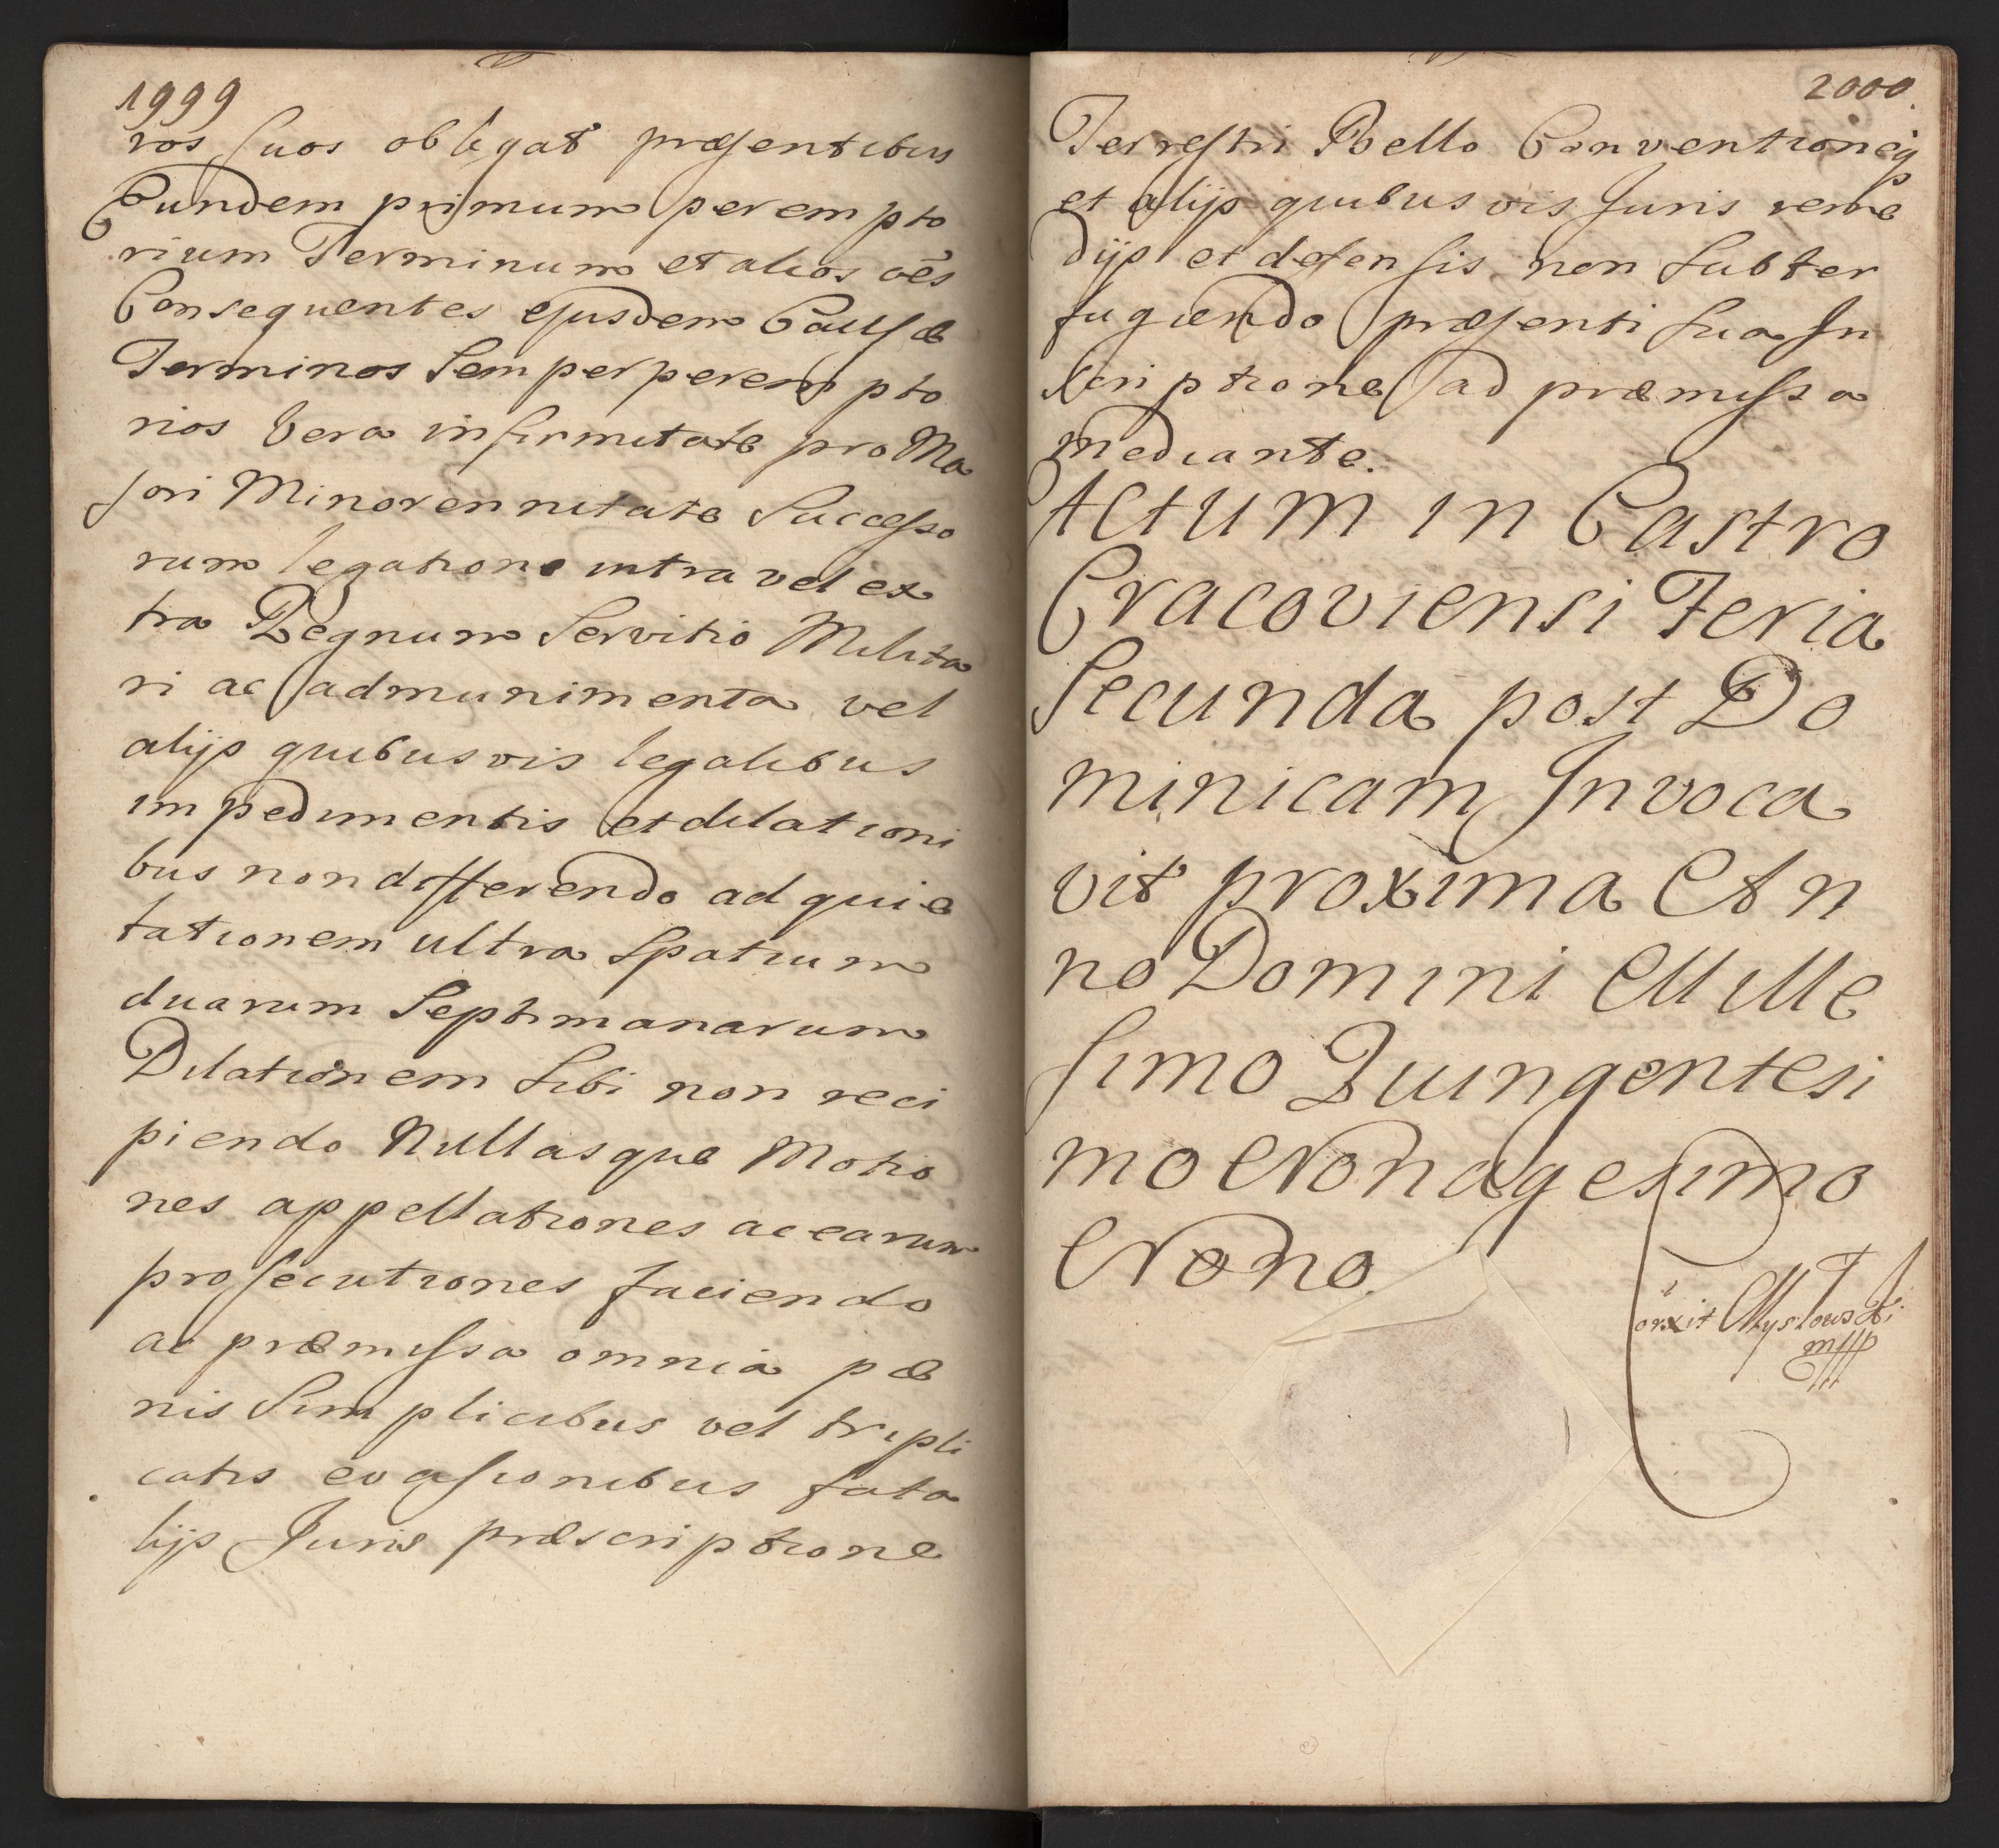 1999
ros suos obligat præsentibus
Eundem primum perempto
rium Terminum et alios oẽs
Consequentes ejusdem Causæ
Terminos Semper perempto
rios Vera infirmitate pro Ma
jori Minorennitate Successo
rum legatione intra vel ex
tra Regnum Servitio Milita
ri ac ad munimenta vel
alijs quibusvis legalibus
impedimentis et dilationi
bus non differendo ad quie
tationem ultra Spatium
duarum Septimanarum
Dilationem Sibi non reci
piendo Nullasque Motio
nes appellationes ac earum
prosecutiones faciendo
ac præmissa omnia pæ
nis Simplicibus vel tripli
catis evasionibus fata
lijs Juris præscriptione
2000.
Terrestri Bello Conventioneq
et alijs quibusvis Juris reme
dijs et defensis non Subter
fugiendo præsenti Sua In
scriptione ad præmissa
mediante.
Actum in Castro
Cracoviensi Feria
Secunda post Do
minicam Invoca
vit proxima An
no Domini Mille
simo Quingentesi
mo Nonagesimo
Nono.